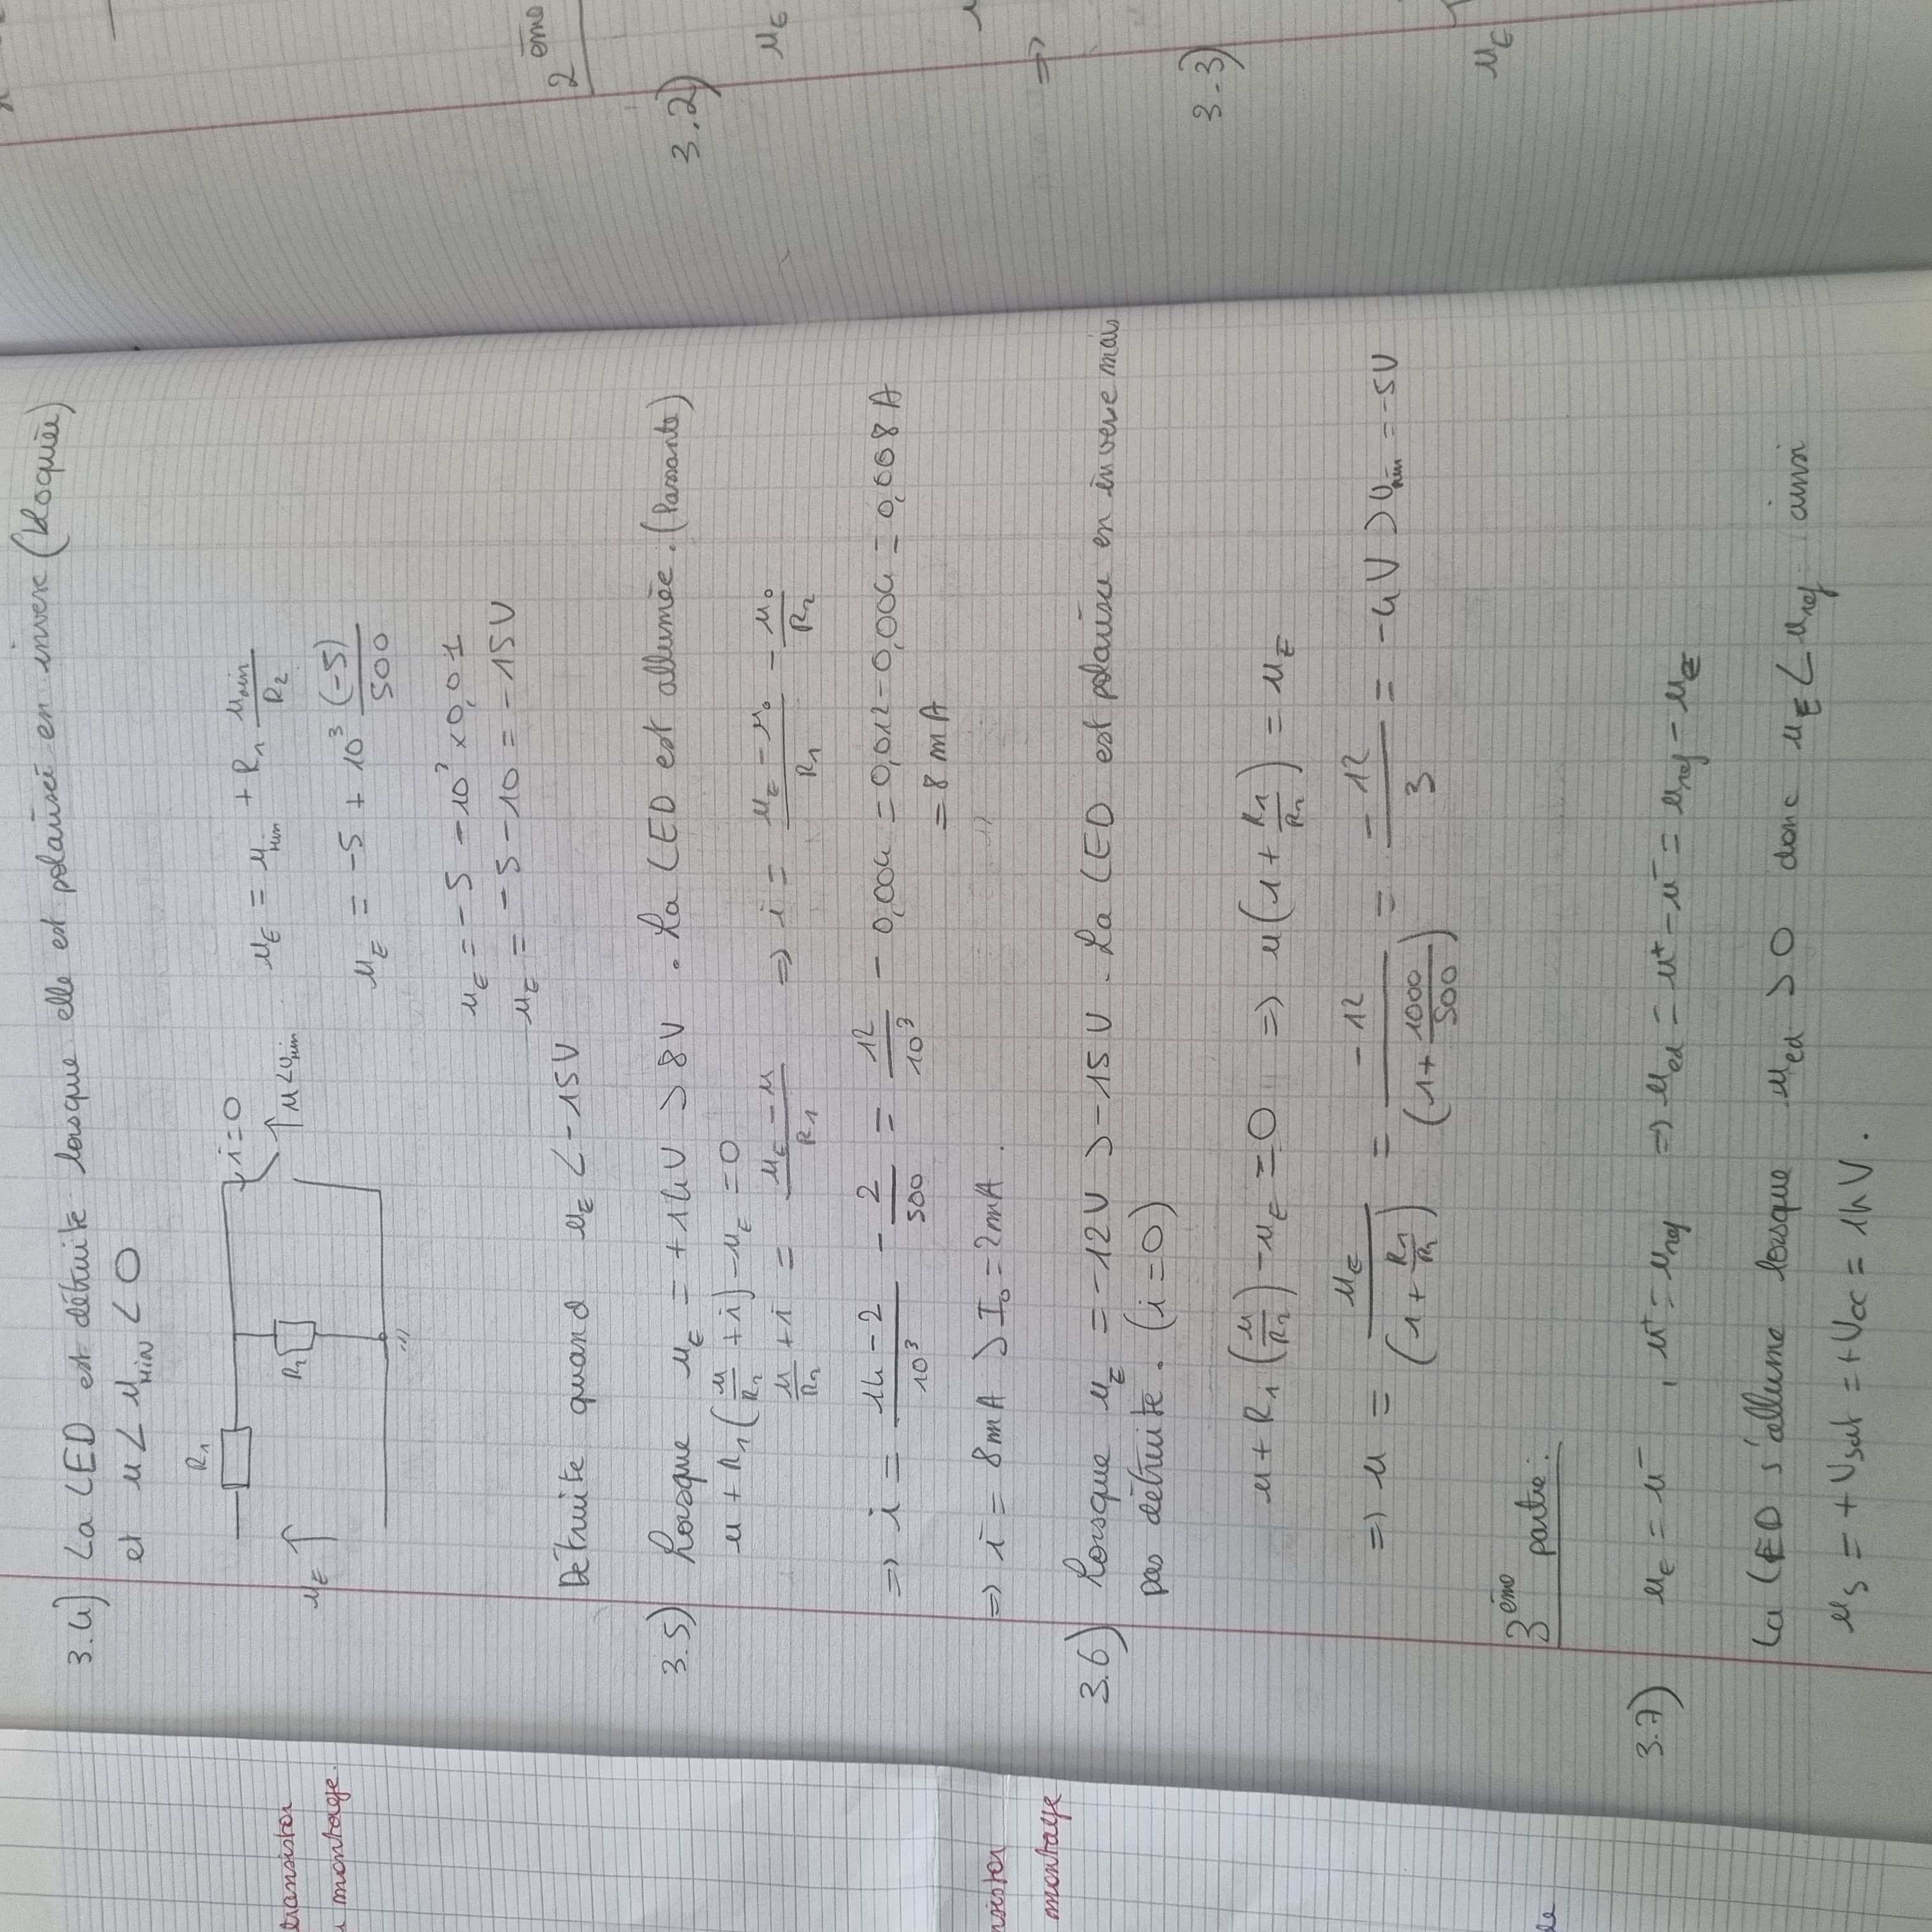 3.4) La LED est détruite lorsque elle est polarisée en inverse (bloquée)
et u < u_MIN < 0
R₁
i=0
u_E
R₂
u < u_min
u_E = u_min + R₁ u_min/R₂
u_E = -5 + 10³ (-5)/500
u_E = -5 - 10³ × 0,01
u_E = -5 - 10 = -15V
Détruite quand u_E < -15V
3.5) Lorsque u_E = +14V > 8V . La LED est allumée. (Passante)
u + R₁(u/R₂ + i) - u_E = 0
u/R₂ + i = (u_E - u)/R₁ => i = (u_E - u₀)/R₁ - u₀/R₂
=> i = (14-2)/10³ - 2/500 = 12/10³ - 0,004 = 0,012 - 0,004 = 0,008 A
= 8 mA
=> i = 8mA > I₀ = 2mA .
3.6) Lorsque u_E = -12V > -15V . La LED est polarisée en inverse mais
pas détruite. (i=0)
u + R₁(u/R₂) - u_E = 0 => u(1 + R₁/R₂) = u_E
=> u = u_E/(1 + R₁/R₂) = -12/(1 + 1000/500) = -12/3 = -4V > U_min = -5V
3ème partie :
3.7) u_E = u⁻ , u⁺ = u_ref => u_ed = u⁺ - u⁻ = u_ref - u_E
La LED s'allume lorsque u_ed > 0 donc u_E < u_ref ainsi
u_S = + V_sat = + V_cc = 14V.
2ème
3.2)
u_E
=>
3.3)
u_E
transistor
montage.
montage